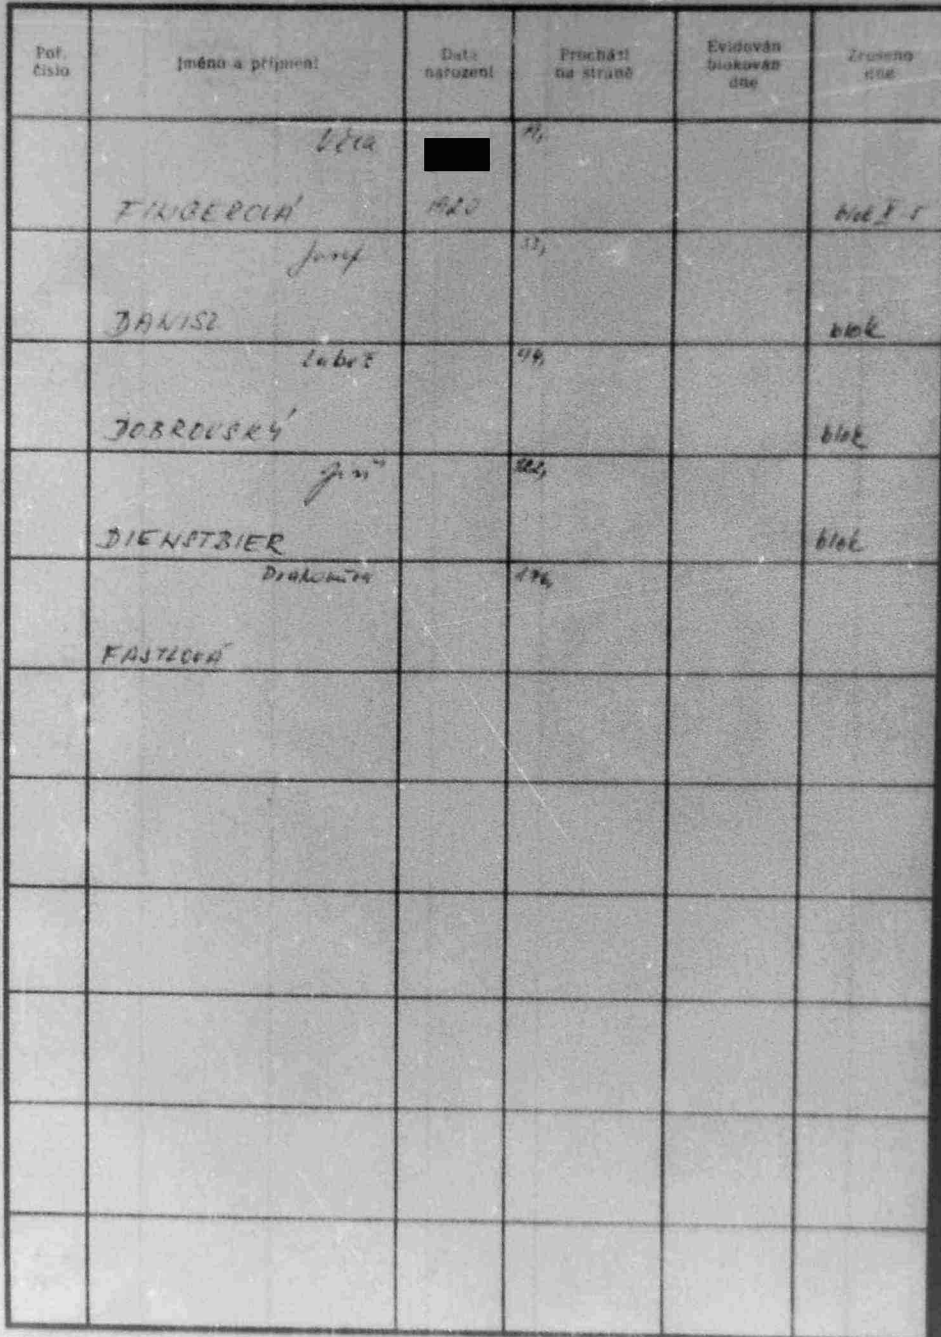 Poř. číslo
Jméno a příjmení
Data narození
Prochází na straně
Evidován blokován dne
Zrušeno dne
Věra
FINGEROVÁ 1920 blok V-5
Josef 33,
DANISZ blok
Luboš 44,
DOBROVSKÝ blok
Jiří 122,
DIENSTBIER blok
Drahomíra 176,
FASTLOVÁ